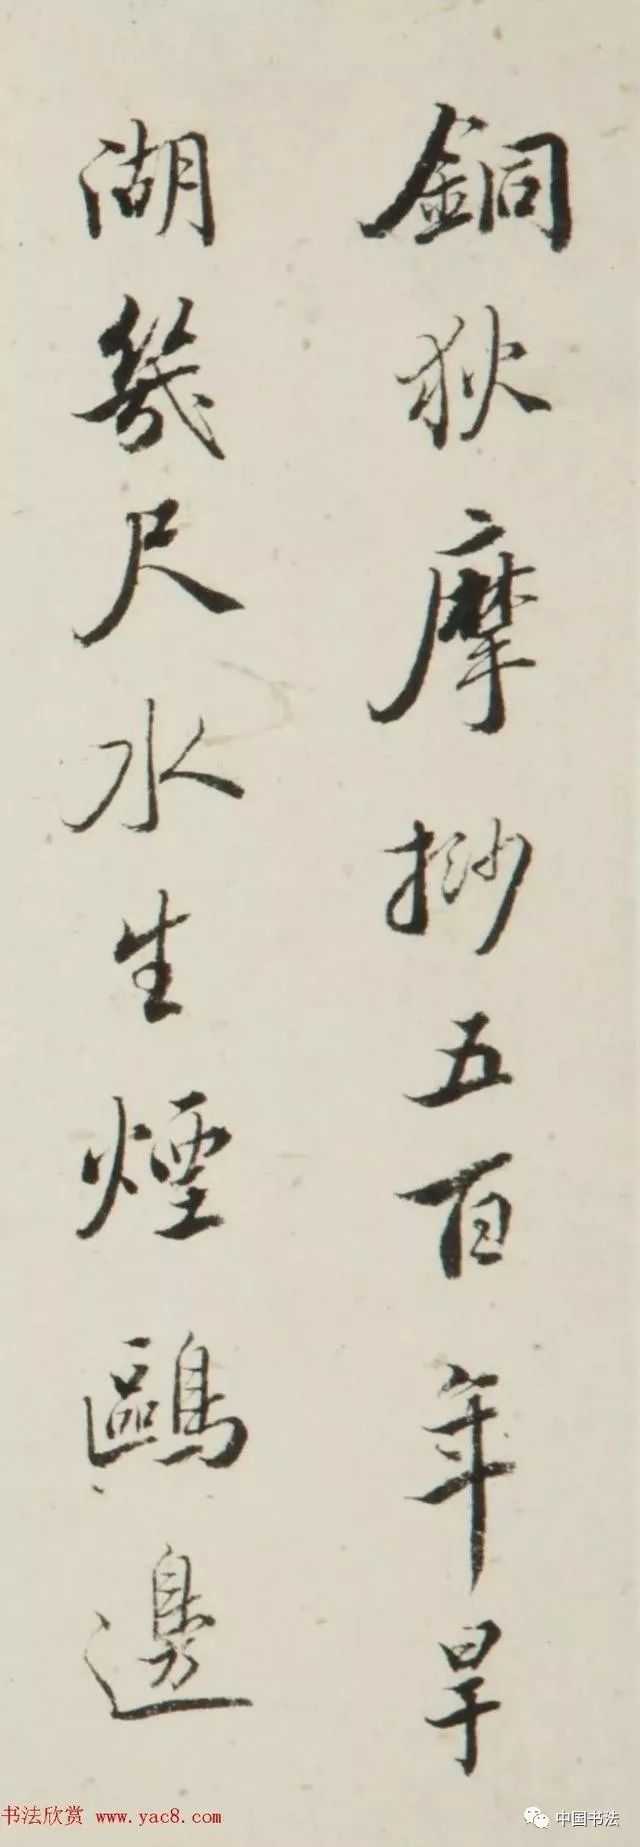 銅狄摩挱五百年旱
湖幾尺水生煙鷗邊
书法欣赏 www.yac8.com
中国书法